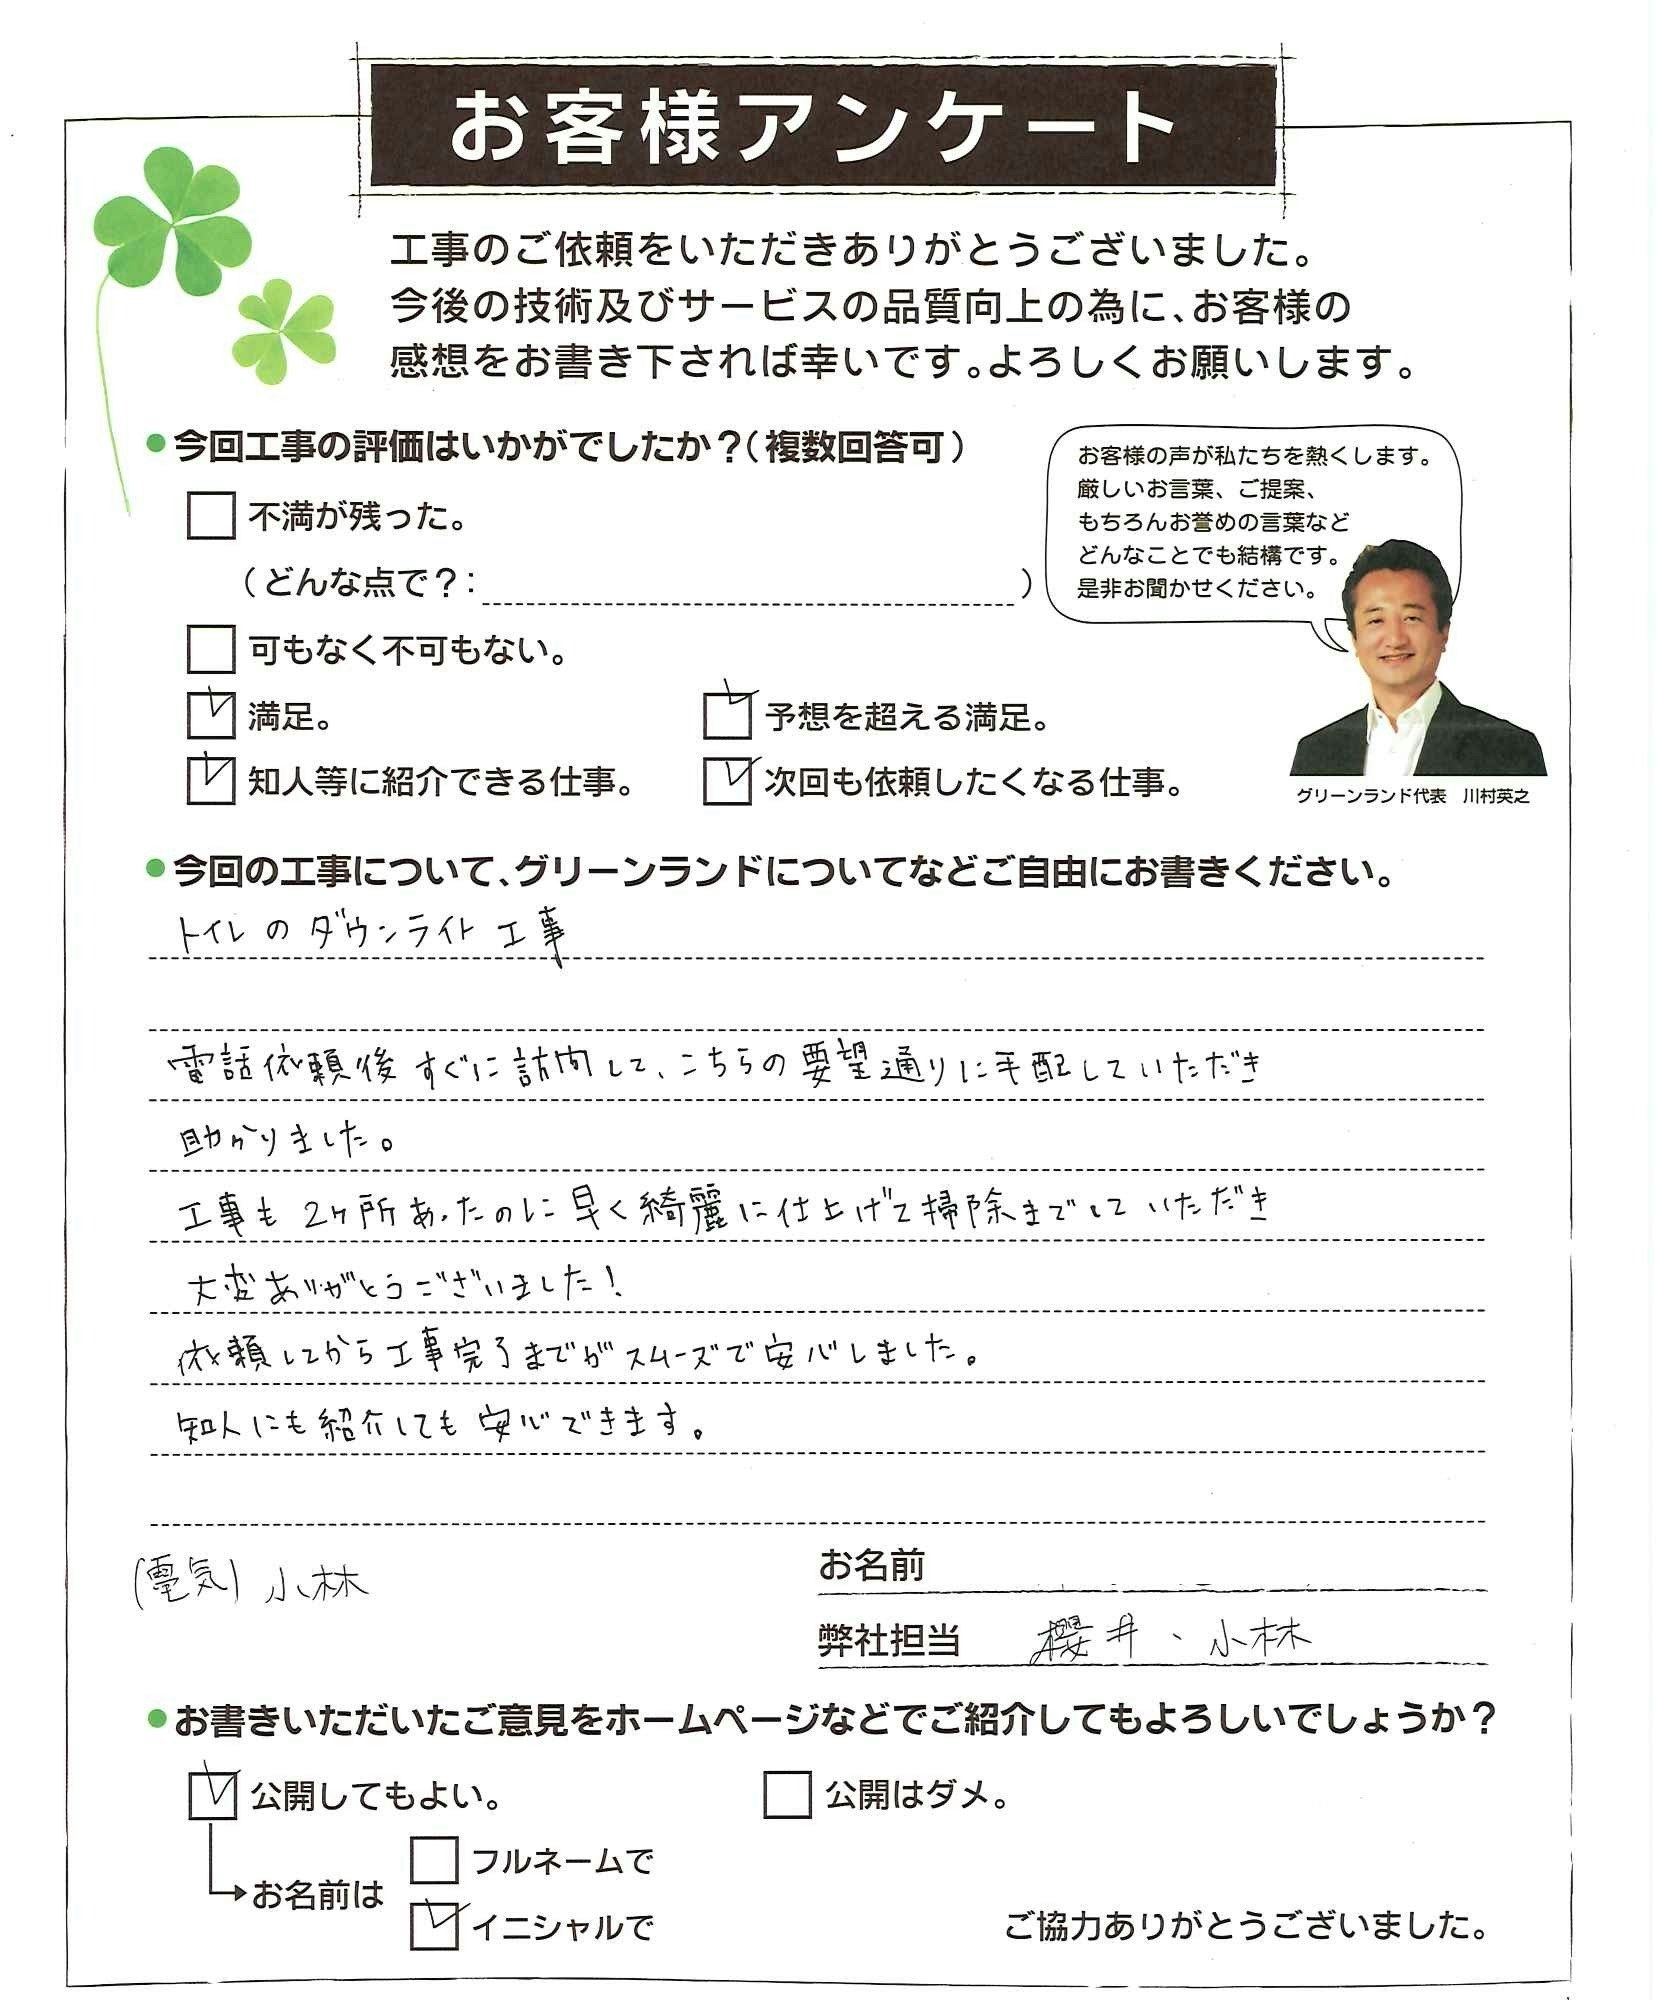 お客様アンケート
工事のご依頼をいただきありがとうございました。
今後の技術及びサービスの品質向上の為に、お客様の
感想をお書き下されば幸いです。よろしくお願いします。
●今回工事の評価はいかがでしたか？（複数回答可）
不満が残った。
（どんな点で？：　）
可もなく不可もない。
満足。
予想を超える満足。
知人等に紹介できる仕事。
次回も依頼したくなる仕事。
お客様の声が私たちを熱くします。
厳しいお言葉、ご提案、
もちろんお誉めの言葉など
どんなことでも結構です。
是非お聞かせください。
グリーンランド代表　川村英之
●今回の工事について、グリーンランドについてなどご自由にお書きください。
トイレのダウンライト工事
電話依頼後すぐに訪問して、こちらの要望通りに手配していただき
助かりました。
工事も2ヶ所あったのに早く綺麗に仕上げて掃除までしていただき
大変ありがとうございました！
依頼してから工事完了までがスムーズで安心しました。
知人にも紹介しても安心できます。
(電気) 小林
お名前
弊社担当　櫻井、小林
●お書きいただいたご意見をホームページなどでご紹介してもよろしいでしょうか？
公開してもよい。
公開はダメ。
お名前は
フルネームで
イニシャルで
ご協力ありがとうございました。